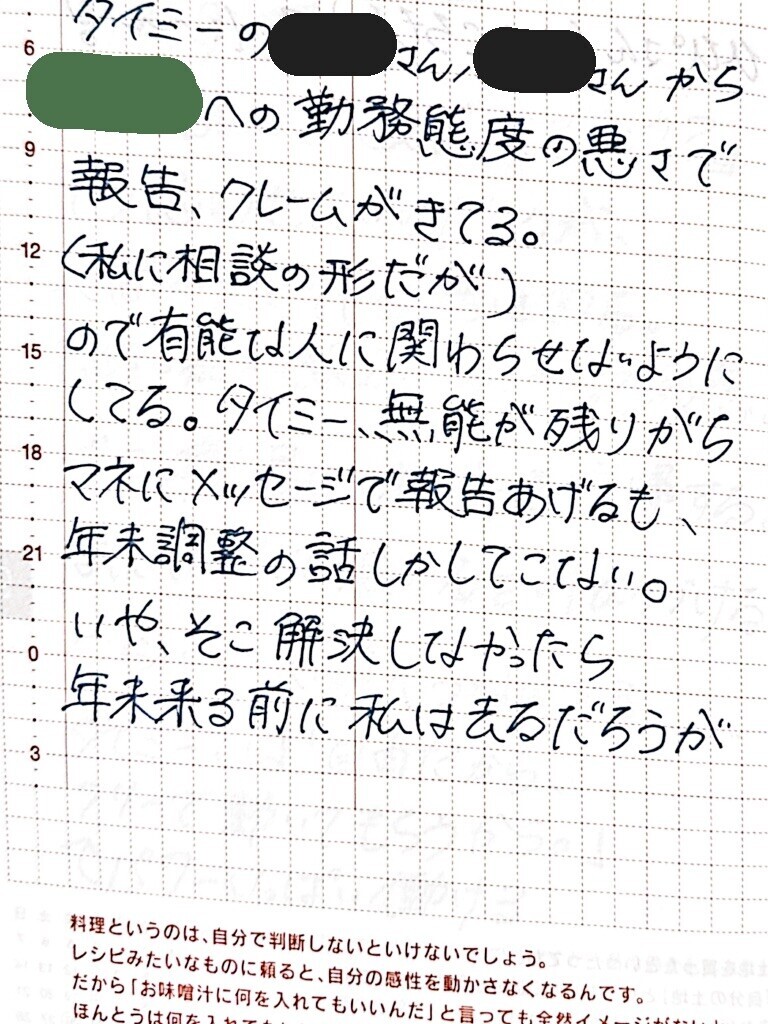 タイミーの
さん、
さん から
6
への 勤務態度の悪さで
9
報告、クレームがきてる。
12
(私に相談の形だが)
ので有能な人に関わらせないように
15
してる。タイミー、無能が残りがち
18
マネにメッセージで報告あげるも、
21
年末調整の話しかしてこない。
いや、そこ解決しなかったら
0
年末来る前に私は去るだろうが
3
料理というのは、自分で判断しないといけないでしょう。
レシピみたいなものに頼ると、自分の感性を動かさなくなるんです。
だから「お味噌汁に何を入れてもいいんだ」と言っても全然イメージがないと
ほんとうは何を入れても